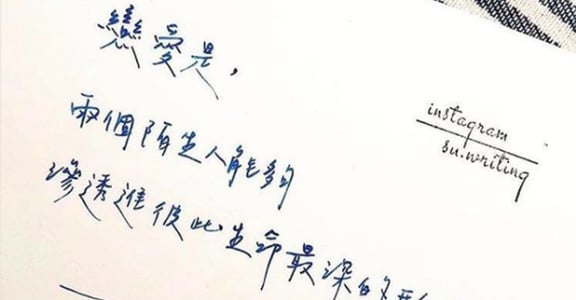 戀愛是,
兩個陌生人能夠
滲透進彼此生命最深的
instagram
su.writing